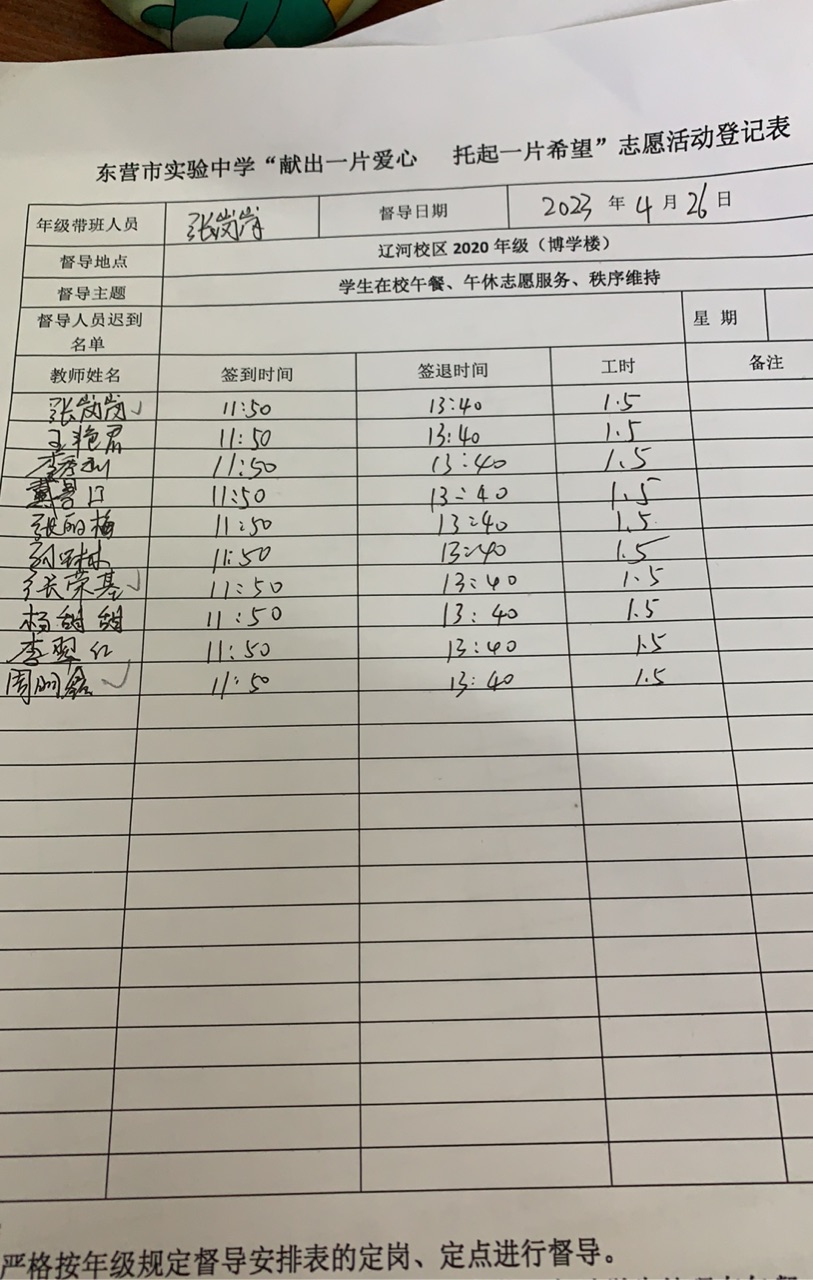 东营市实验中学“献出一片爱心 托起一片希望”志愿活动登记表
年级带班人员 张岗岗 督导日期 2023 年 4 月 26 日
督导地点 辽河校区 2020 年级（博学楼）
督导主题 学生在校午餐、午休志愿服务、秩序维持
督导人员迟到名单 星 期
教师姓名 签到时间 签退时间 工时 备注
张岗岗 11:50 13:40 1.5
王艳君 11:50 13:40 1.5
11:50 13:40 1.5
11:50 13:40 1.5
张丽梅 11:50 13:40 1.5
11:50 13:40 1.5
张荣基 11:50 13:40 1.5
杨甜甜 11:50 13:40 1.5
李翠红 11:50 13:40 1.5
11:50 13:40 1.5
严格按年级规定督导安排表的定岗、定点进行督导。